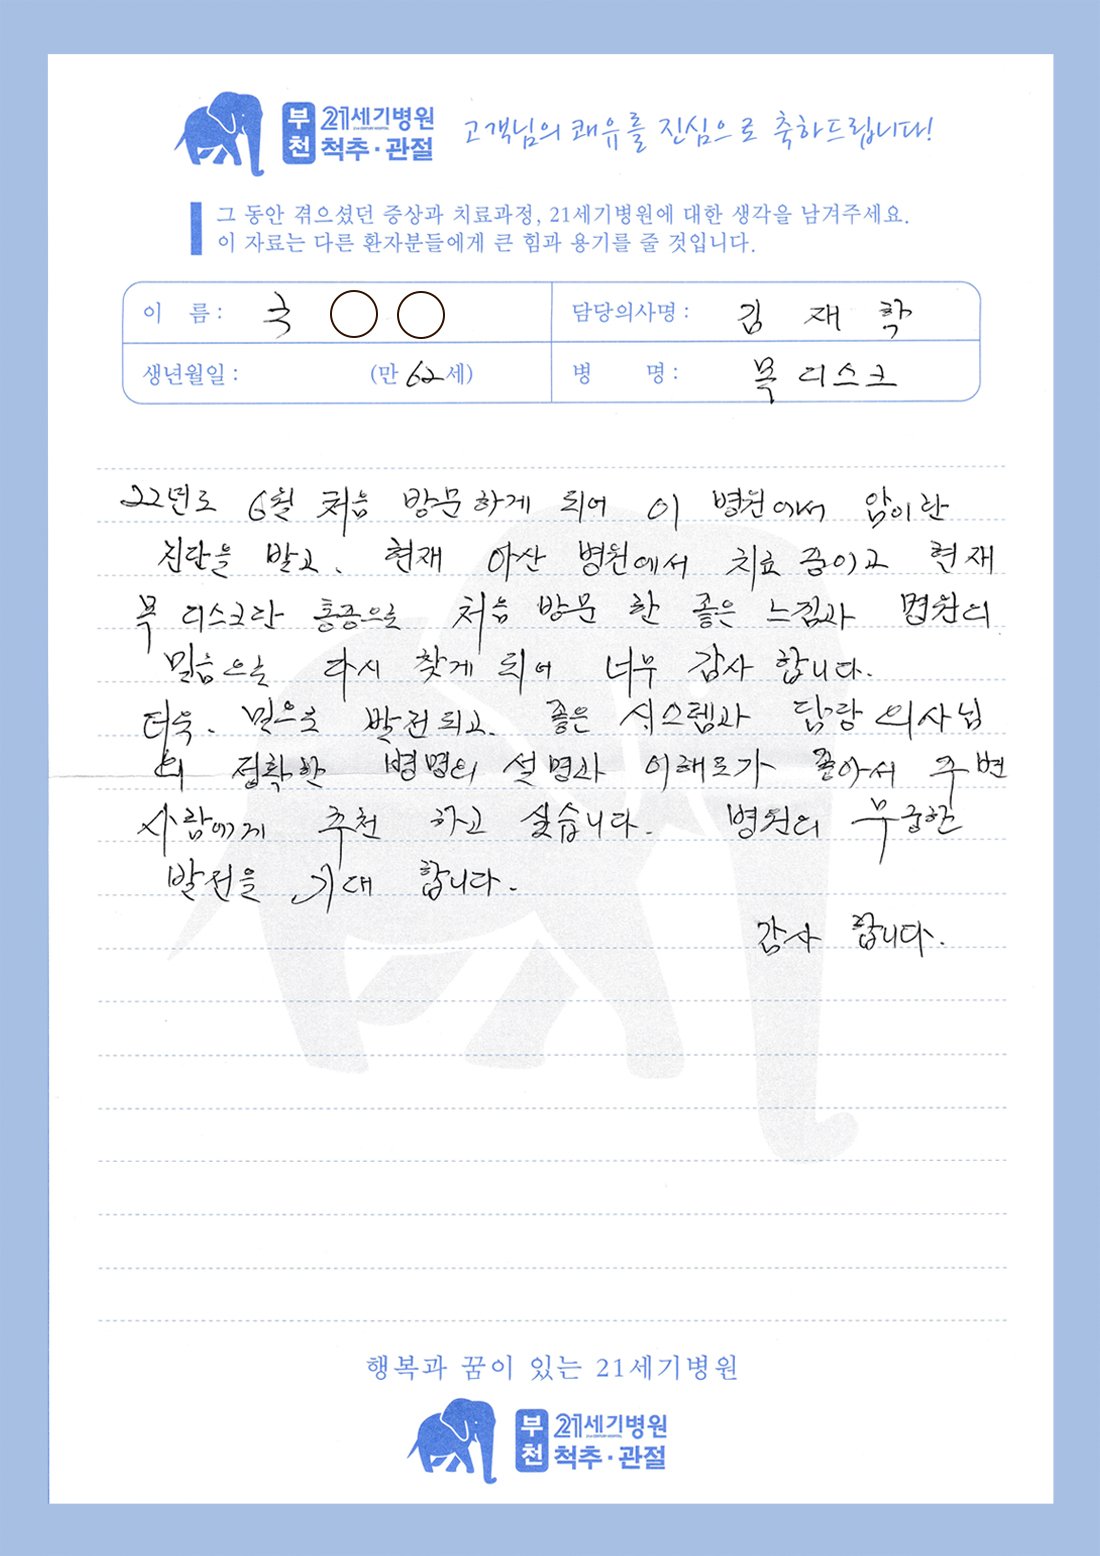 부천 21세기병원 척추·관절 고객님의 쾌유를 진심으로 축하드립니다!
그 동안 겪으셨던 증상과 치료과정, 21세기병원에 대한 생각을 남겨주세요.
이 자료는 다른 환자분들에게 큰 힘과 용기를 줄 것입니다.
이 름 : 국 ○ ○ 담당의사명 : 김 재 학
생년월일 : (만 62 세) 병 명 : 목 디스크
22년도 6월 처음 방문하게 되어 이 병원에서 암이란
진단을 받고, 현재 아산 병원에서 치료 중이고 현재
목 디스크란 통증으로 처음 방문 한 좋은 느낌과 병원의
믿음으로 다시 찾게 되어 너무 감사 합니다.
더욱. 발전되고. 좋은 시스템과 담당 의사님
의 정확한 병명의 설명과 이해도가 좋아서 주변
사람에게 추천 하고 싶습니다. 병원의 무궁한
발전을 기대 합니다.
감사 합니다.
행복과 꿈이 있는 21세기병원
부천 21세기병원 척추·관절